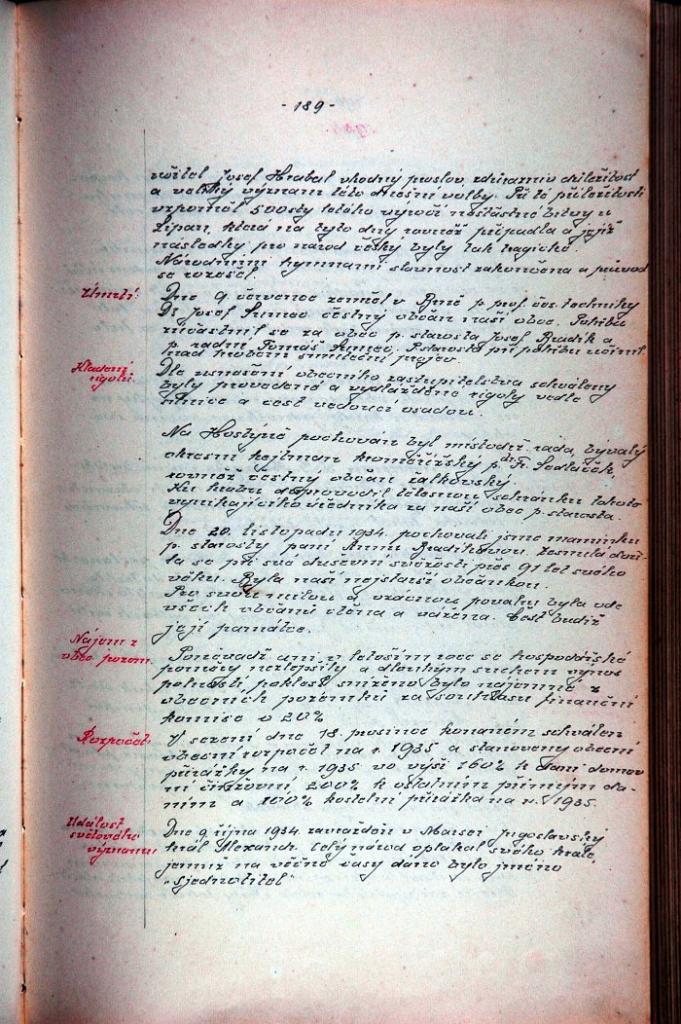 - 189 -
učitel Josef Hrabal vhodný proslov, zdůrazniv důležitost
a veliký význam této dnešní volby. Při té příležitosti
vzpomněl 500stý letého výročí nešťastné bitvy u
Lipan, která na tyto dny rovněž připadla a jejíž
následky pro národ český byly tak tragické.
Národními hymnami slavnost zakončena a průvod
se rozešel.
Úmrtí:
Dne 9. července zemřel v Brně p. prof. čes. techniky
Dr. Josef čestný občan naší obce. Pohřbu
zúčastnil se za obec p. starosta Josef Bradík a
p. radní Tomáš Starosta při pohřbu učinil
nad hrobem smuteční projev.
Kladení
rigolů.
Dle usnešení obecního zastupitelstva schváleny
byly provedené a vydlážděné rigoly vedle
silnice a cest vedoucí osadou.
Na Hostýně pochován byl místodrž. rada, bývalý
okresní hejtman kroměřížský p. dr. Fr. Sedláček,
rovněž čestný občan žalkovský.
Ku hrobu doprovodil tělesnou schránku tohoto
vynikajícího úředníka za naši obec p. starosta.
Dne 20. listopadu 1934. pochovali jsme maminku
p. starosty paní Annu Bradíkovou. Zesnulá doži-
la se při své duševní svěžesti přes 91 let svého
věku. Byla naší nejstarší občankou.
Pro svou milou a vzácnou povahu byla ode
všech občanů ctěna a vážena. Čest budiž
její památce.
Nájem z
obec. pozem.
Poněvadž ani v letošním roce se hospodářské
poměry nezlepšily a dlouhým suchem výnos
polností poklesl, sníženo bylo nájemné z
obecních pozemků za souhlasu finanční
komise o 20%
Rozpočet:
V sezení dne 18. prosince konaném schválen
obecní rozpočet na r. 1935 a stanoveny obecní
přirážky na r. 1935 ve výši 160% k dani domov
ní činžovní, 200% k ostatním přímým da-
ním a 100% kostelní přirážka na r. 1935.
Událost
světového
významu
Dne 9. října 1934. zavražděn v Marsei Jugoslavský
král Alexandr. Celý národ oplakal svého krále,
jemuž na věčné časy dáno bylo jméno
„Sjednotitel"